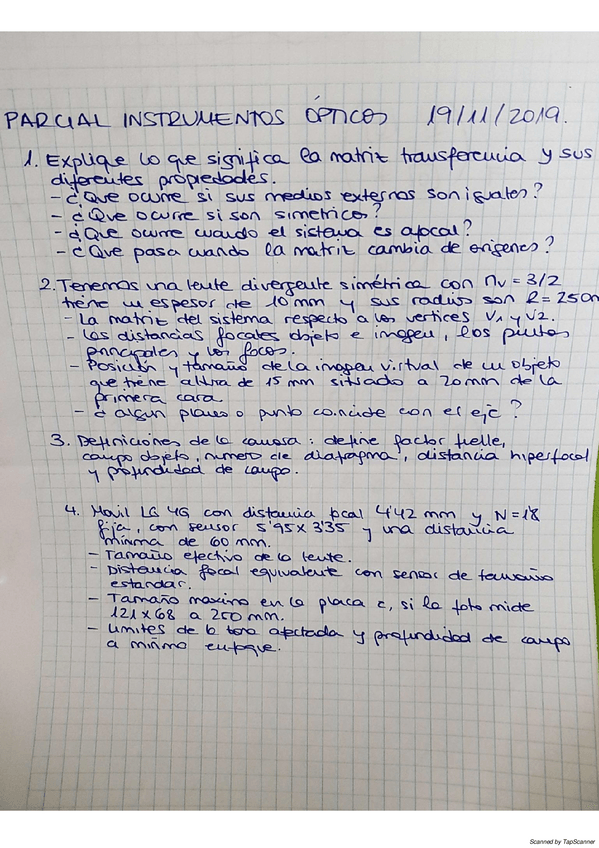 PARCIAL INSTRUMENTOS ÓPTICOS 19/11/2019.
1. Explique lo que significa la matriz transferencia y sus
diferentes propiedades.
- ¿Que ocurre si sus medios externos son iguales?
- ¿Que ocurre si son simetricos?
- ¿Que ocurre cuando el sistema es afocal?
- ¿Que pasa cuando la matriz cambia de origenes?
2. Tenemos una lente divergente simétrica con nv = 3/2
tiene un espesor de 10mm y sus radios son R = 250m
- La matriz del sistema respecto a los vertices V1 y V2.
- Las distancias focales objeto e imagen, los puntos
principales y los focos.
- Posición y tamaño de la imagen virtual de un objeto
que tiene altura de 15 mm situado a 20mm de la
primera cara.
- ¿ algún plano o punto coincide con el eje ?
3. Definiciones de la camara: define factor fuelle,
campo objeto, numero de diafragma, distancia hiperfocal
y profundidad de campo.
4. Movil LG 4G con distancia focal 4'42 mm y N=1'8
fija, con sensor 5'95 x 3'35 y una distancia
mínima de 60 mm.
- Tamaño efectivo de la lente.
- Distancia focal equivalente con sensor de tamaño
estandar.
- Tamaño maximo en la placa c, si la foto mide
121 x 68 a 250 mm.
- Limites de la zona afectada y profundidad de campo
a mínimo enfoque.
Scanned by TapScanner